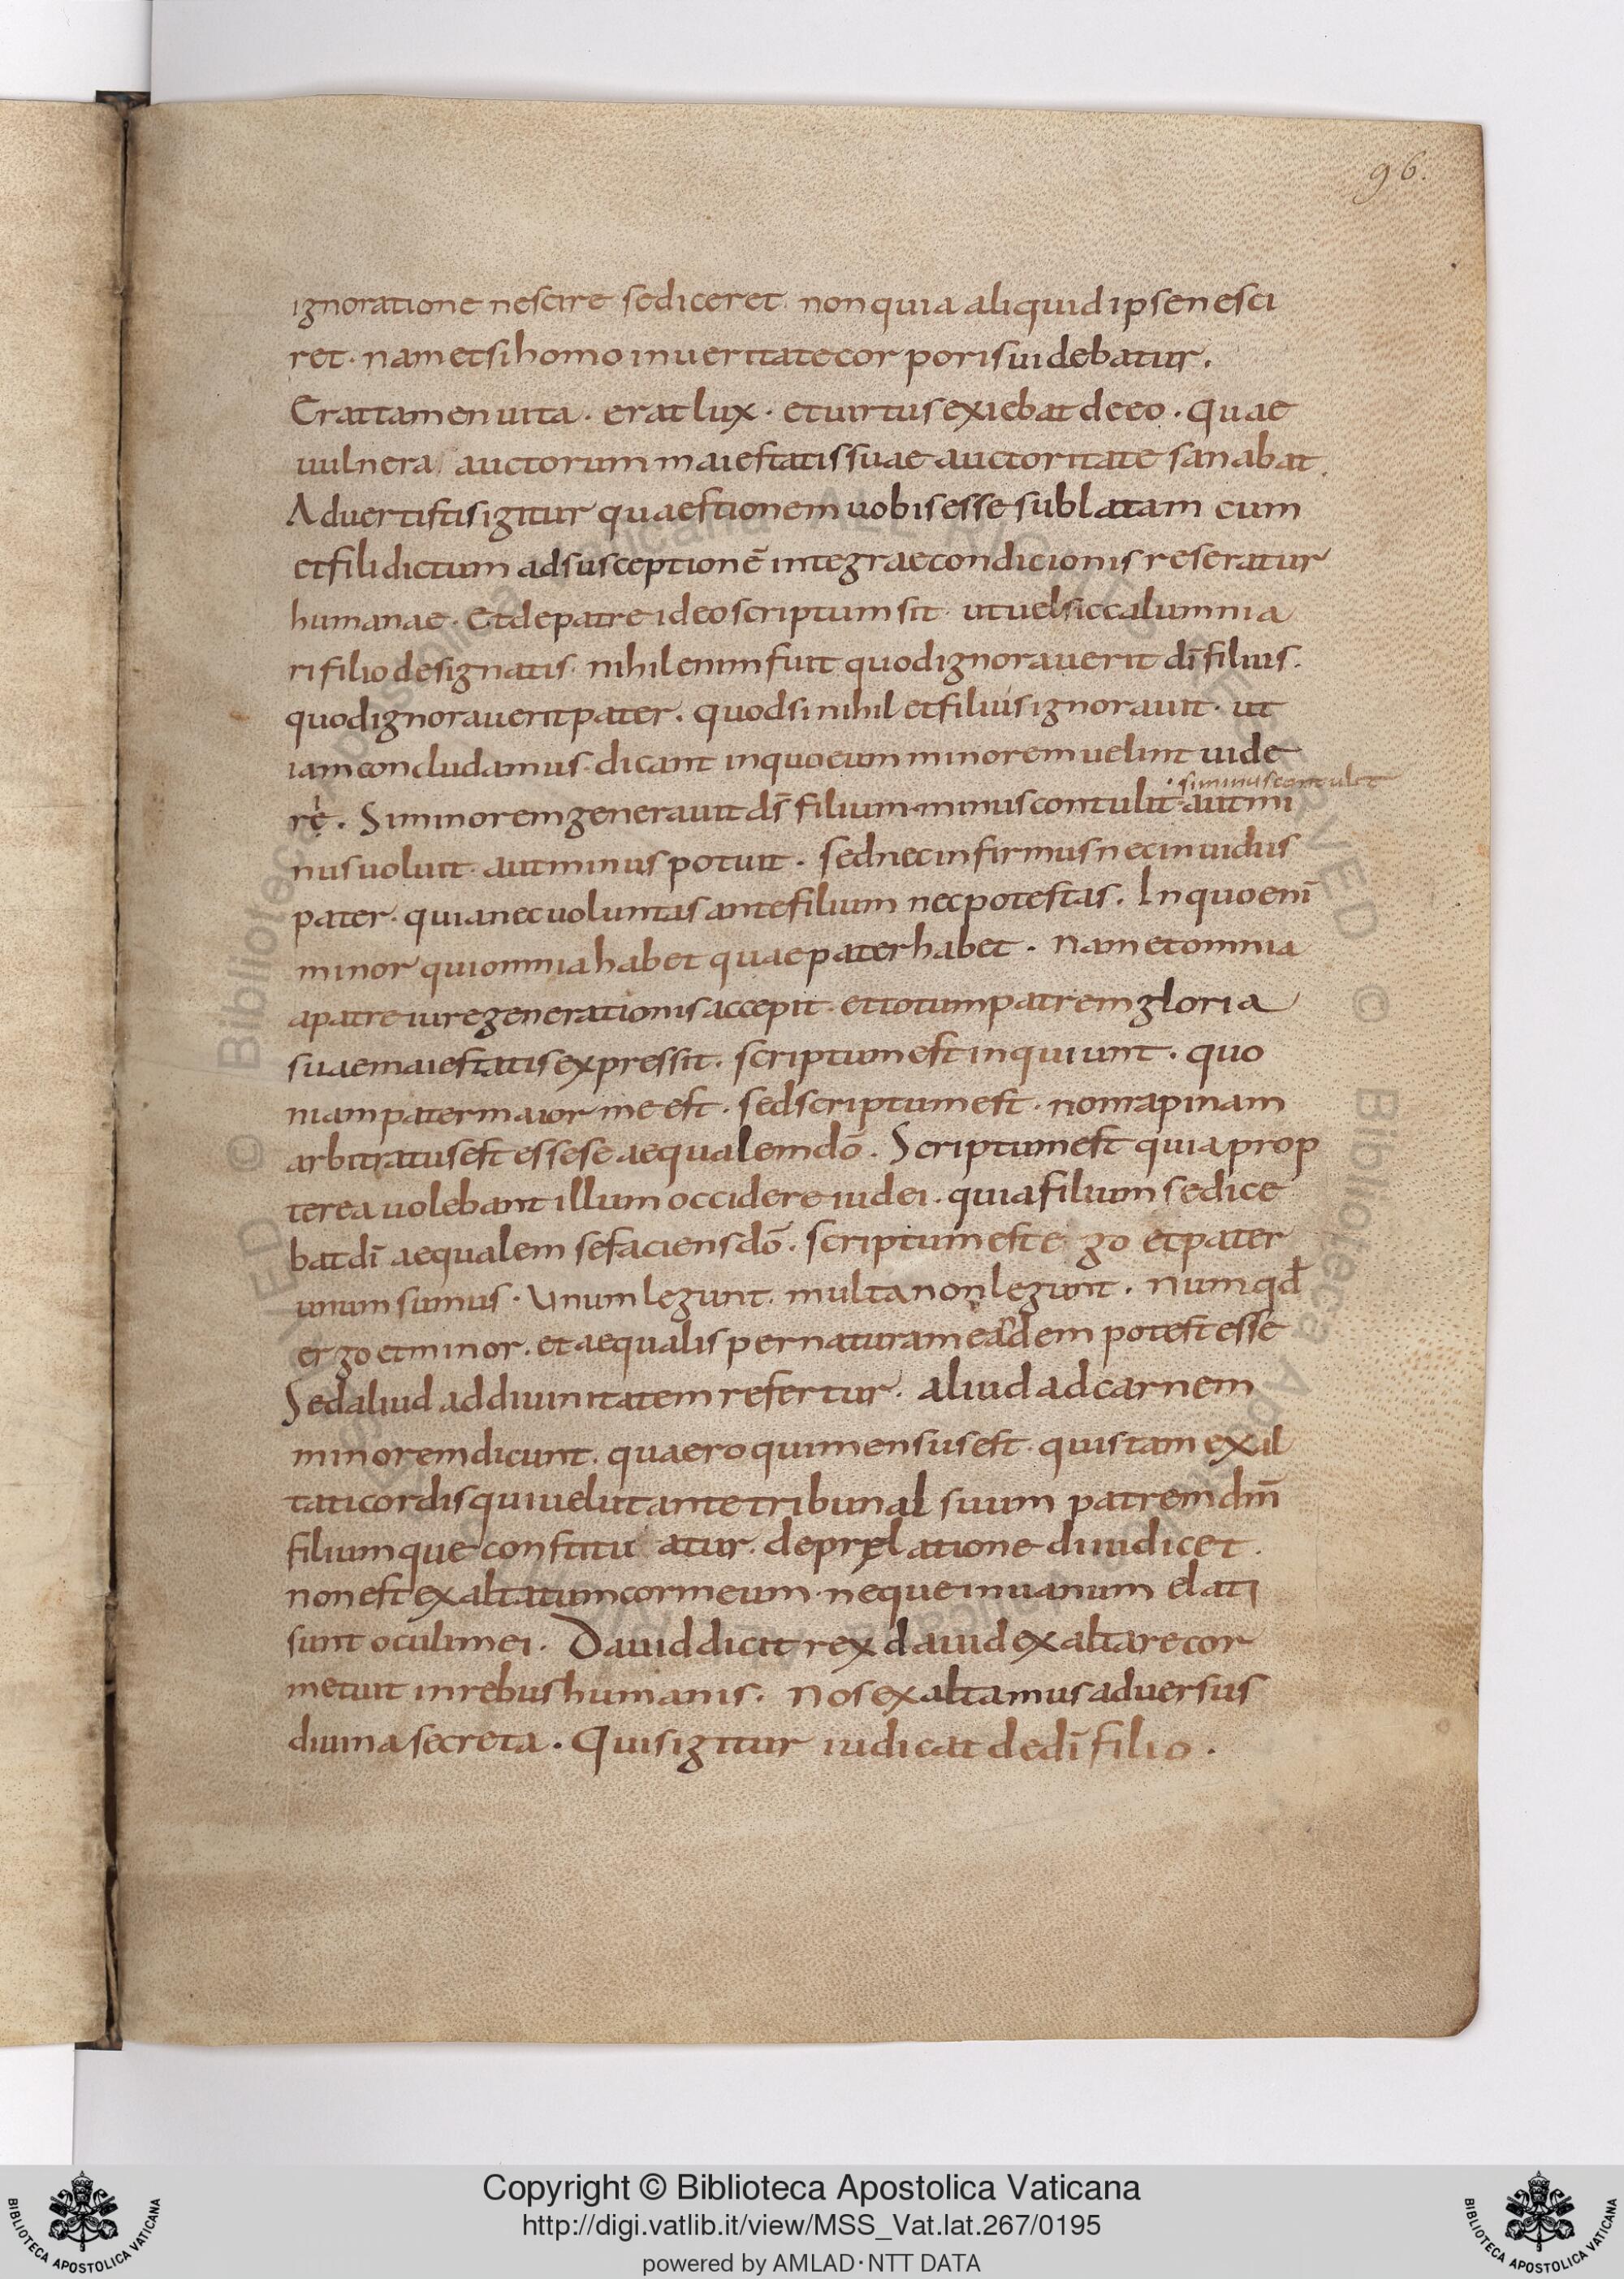 96.
ignoratione nescire se diceret. non quia aliquid ipse nesci
ret. nam etsi homo in ueritate corporis uidebatur.
Erat tamen uita. erat lux. et uirtus exiebat de eo. quae
uulnera auctorum maiestatis suae auctoritate sanabat.
Aduertistis igitur quaestionem uobis esse sublatam cum
et fili dictum ad susceptionē integrae condicionis reseratur
humanae. Et de patre ideo scriptum sit. ut uel sic calumnia
ri filio designatis. nihil enim fuit quod ignorauerit dī filius.
quod ignorauerit pater. quod si nihil et filius ignorauit. ut
iam concludamus. dicant in quo eum minorem uelint uide
·si minus contulit
re. Si minorem generauit dī filium. minus contulit. aut mi
nus uoluit. aut minus potuit. sed nec infirmus nec inuidus
pater. quia nec uoluntas ante filium nec potestas. In quo enī
minor qui omnia habet quae pater habet. Nam et omnia
a patre iure generationis accepit. et totum patrem gloria
suae maiestatis expressit. scriptum est inquiunt. quo
niam pater maior me est. sed scriptum est. non rapinam
arbitratus est esse se aequalem dō. Scriptum est quia prop
terea uolebant illum occidere iudei. quia filium se dice
bat dī aequalem se faciens dō. scriptum est ego et pater
unum sumus. Unum legunt. multa non legunt. Numqd
ergo et minor. et aequalis per naturam eadem potest esse
Sed aliud ad diuinitatem refertur. aliud ad carnem
minorem dicunt. quaero qui mensus est. quis tam exal
tati cordis qui uelut ante tribunal suum patrem dm̄
filiumque constituatur. de pręlatione diiudicet.
non est exaltatum cor meum. neque in uanum elati
sunt oculi mei. Dauid dicit rex dauid exaltare cor
metuit in rebus humanis. Nos exaltamus aduersus
diuina secreta. Quis igitur iudicat de dī filio.
Copyright © Biblioteca Apostolica Vaticana
http://digi.vatlib.it/view/MSS_Vat.lat.267/0195
powered by AMLAD·NTT DATA
BIBLIOTECA APOSTOLICA VATICANA
BIBLIOTECA APOSTOLICA VATICANA